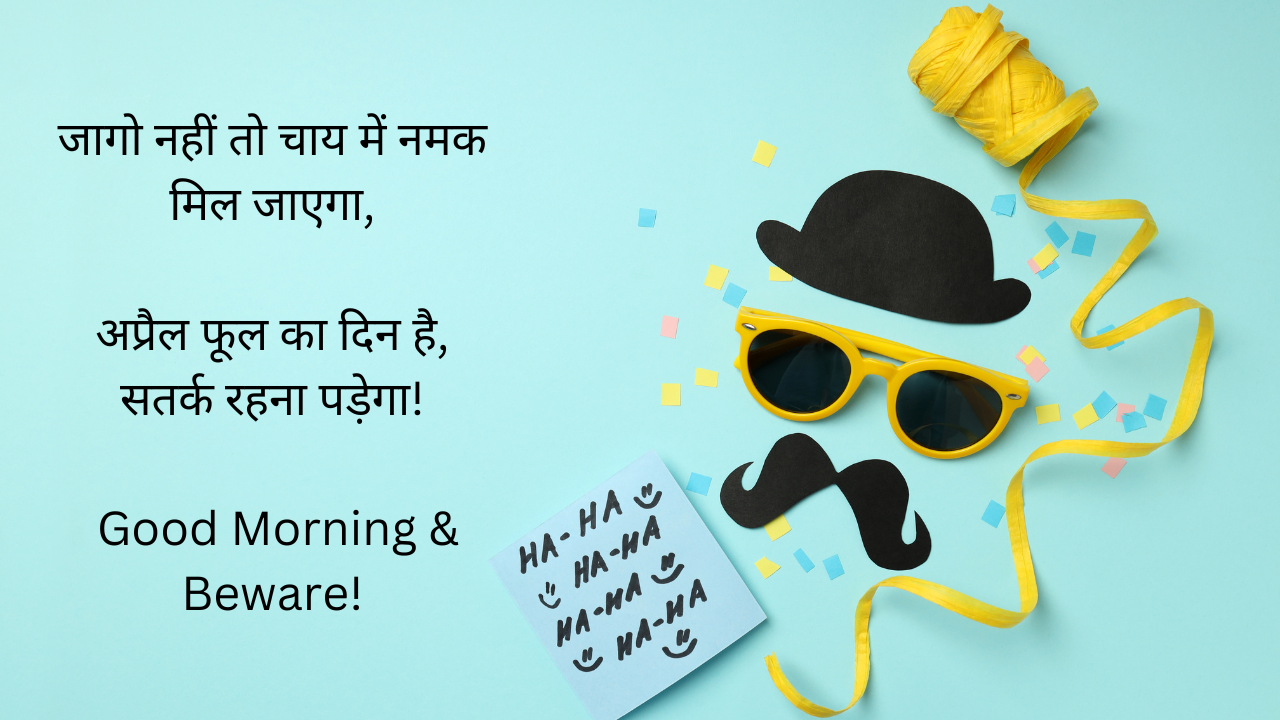 जागो नहीं तो चाय में नमक
मिल जाएगा,
अप्रैल फूल का दिन है,
सतर्क रहना पड़ेगा!
Good Morning &
Beware!
HA-HA
HA-HA
HA-HA
HA-HA